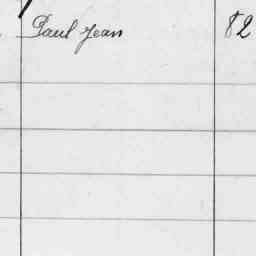 Paul Jean 82